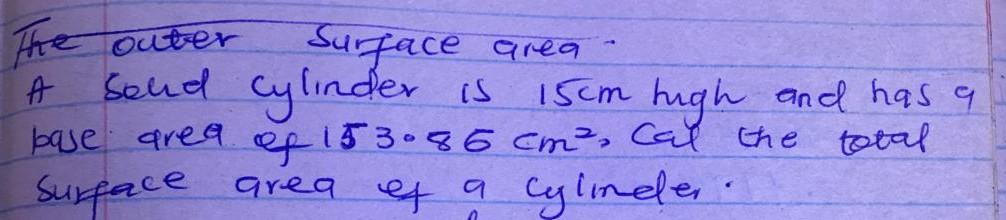 The outer surface area.
A Solid cylinder is 15cm high and has a
base area of 153.86 cm², Cal the total
surface area of a cylinder.